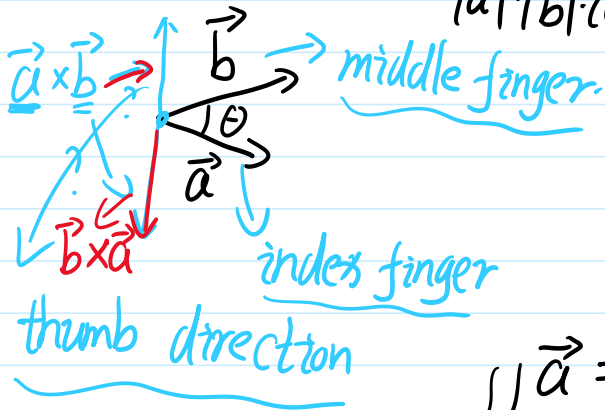 |a||b|·(
b⃗
a⃗ × b⃗
middle finger.
?
θ
?
a⃗
b⃗×a⃗
index finger
thumb direction
a⃗ =